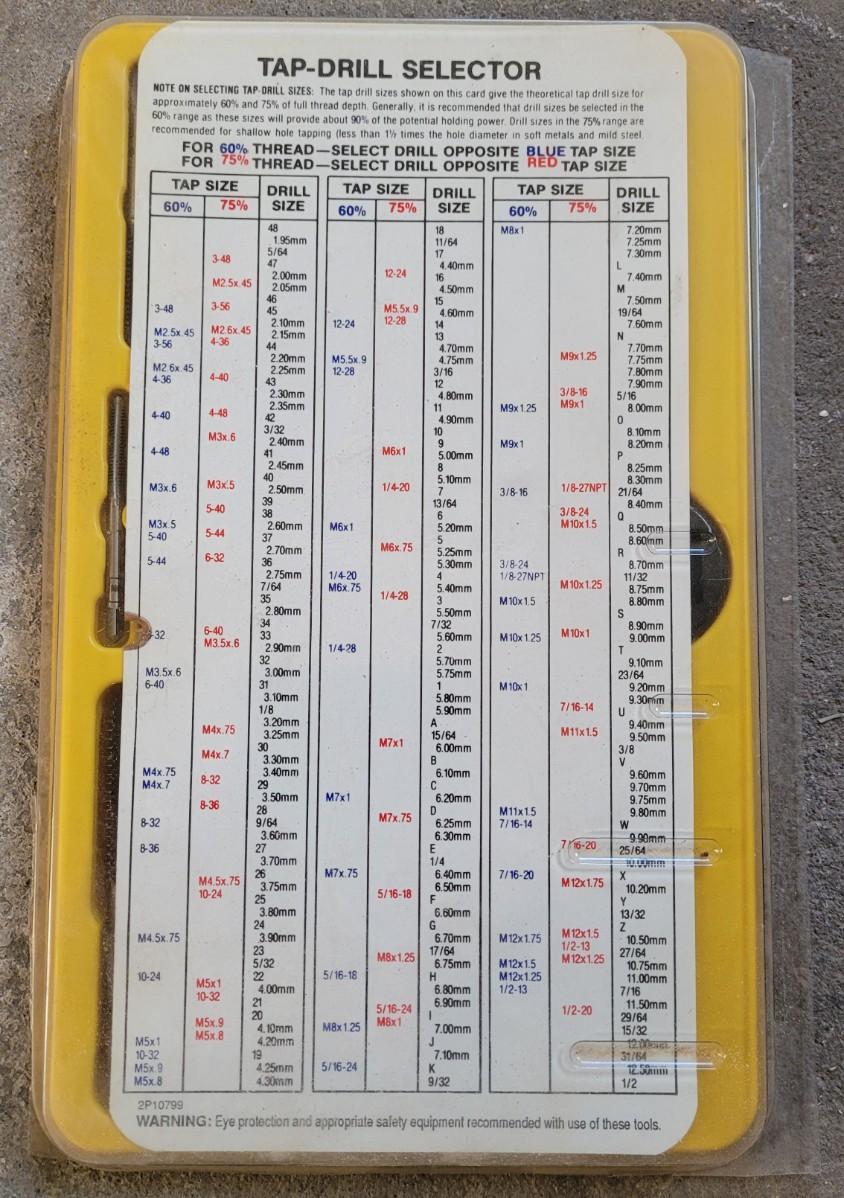 TAP-DRILL SELECTOR
NOTE ON SELECTING TAP-DRILL SIZES: The tap drill sizes shown on this card give the theoretical tap drill size for
approximately 60% and 75% of full thread depth. Generally, it is recommended that drill sizes be selected in the
60% range as these sizes will provide about 90% of the potential holding power. Drill sizes in the 75% range are
recommended for shallow hole tapping (less than 1½ times the hole diameter in soft metals and mild steel
FOR 60% THREAD—SELECT DRILL OPPOSITE BLUE TAP SIZE
FOR 75% THREAD—SELECT DRILL OPPOSITE RED TAP SIZE
TAP SIZE DRILL SIZE
60% 75%
48
1.95mm
5/64
3-48 47
2.00mm
M2.5x.45 2.05mm
46
3-48 3-56 45
2.10mm
M2.5x.45 M2.6x.45 2.15mm
3-56 4-36 44
2.20mm
M2.6x.45 2.25mm
4-36 4-40 43
2.30mm
2.35mm
4-40 4-48 42
3/32
M3x.6 2.40mm
4-48 41
2.45mm
40
M3x.6 M3x.5 2.50mm
39
5-40 38
M3x.5 2.60mm
5-40 5-44 37
2.70mm
5-44 6-32 36
2.75mm
7/64
35
2.80mm
34
-32 6-40 33
M3.5x.6 2.90mm
32
M3.5x.6 3.00mm
6-40 31
3.10mm
1/8
3.20mm
M4x.75 3.25mm
30
M4x.7 3.30mm
M4x.75 3.40mm
M4x.7 8-32 29
3.50mm
8-36 28
8-32 9/64
3.60mm
8-36 27
3.70mm
26
M4.5x.75 3.75mm
10-24 25
3.80mm
24
M4.5x.75 3.90mm
23
5/32
10-24 22
M5x1 4.00mm
10-32 21
20
M5x.9 4.10mm
M5x1 M5x.8 4.20mm
10-32 19
M5x.9 4.25mm
M5x.8 4.30mm
TAP SIZE DRILL SIZE
60% 75%
18
11/64
17
4.40mm
12-24 16
4.50mm
15
M5.5x.9 4.60mm
12-24 12-28 14
13
4.70mm
M5.5x.9 4.75mm
12-28 3/16
12
4.80mm
11
4.90mm
10
9
M6x1 5.00mm
8
5.10mm
1/4-20 7
13/64
6
M6x1 5.20mm
5
M6x.75 5.25mm
5.30mm
1/4-20 4
M6x.75 5.40mm
1/4-28 3
5.50mm
7/32
5.60mm
1/4-28 2
5.70mm
5.75mm
1
5.80mm
5.90mm
A
15/64
M7x1 6.00mm
B
6.10mm
C
M7x1 6.20mm
D
M7x.75 6.25mm
6.30mm
E
1/4
M7x.75 6.40mm
6.50mm
5/16-18 F
6.60mm
G
6.70mm
17/64
M8x1.25 6.75mm
5/16-18 H
6.80mm
6.90mm
5/16-24 I
M8x1.25 M8x1 7.00mm
J
7.10mm
5/16-24 K
9/32
TAP SIZE DRILL SIZE
60% 75%
M8x1 7.20mm
7.25mm
7.30mm
L
7.40mm
M
7.50mm
19/64
7.60mm
N
7.70mm
M9x1.25 7.75mm
7.80mm
7.90mm
3/8-16 5/16
M9x1.25 M9x1 8.00mm
O
8.10mm
M9x1 8.20mm
P
8.25mm
8.30mm
3/8-16 1/8-27NPT 21/64
8.40mm
3/8-24 Q
M10x1.5 8.50mm
8.60mm
R
3/8-24 8.70mm
1/8-27NPT 11/32
M10x1.25 8.75mm
M10x1.5 8.80mm
S
8.90mm
M10x1.25 M10x1 9.00mm
T
9.10mm
23/64
M10x1 9.20mm
9.30mm
7/16-14 U
9.40mm
M11x1.5 9.50mm
3/8
V
9.60mm
9.70mm
9.75mm
M11x1.5 9.80mm
7/16-14 W
9.90mm
7/16-20 25/64
10.00mm
7/16-20 X
M12x1.75 10.20mm
Y
13/32
M12x1.5 Z
M12x1.75 10.50mm
1/2-13 27/64
M12x1.5 M12x1.25 10.75mm
M12x1.25 11.00mm
1/2-13 7/16
11.50mm
1/2-20 29/64
15/32
12.00mm
31/64
12.50mm
1/2
2P10799
WARNING: Eye protection and appropriate safety equipment recommended with use of these tools.